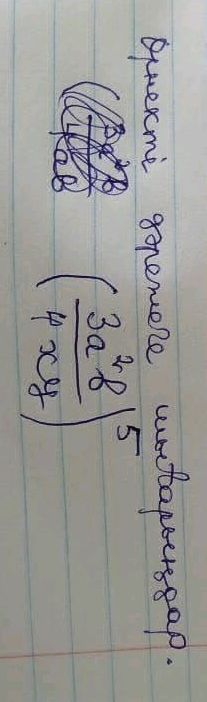 Өрнекті дәрежеге шығарыңдар.
(3a²b / 4xy)⁵